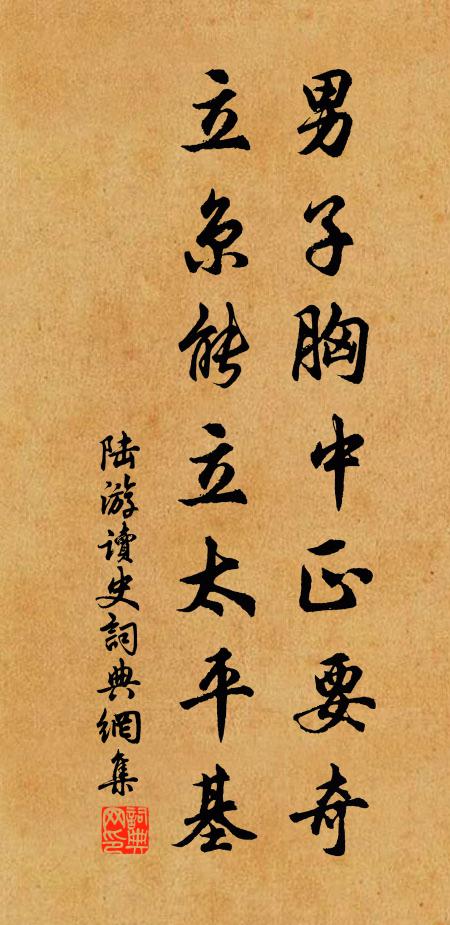 男子胸中正要奇
立京能立太平基
陆游讀史詞典網集
詞典网印